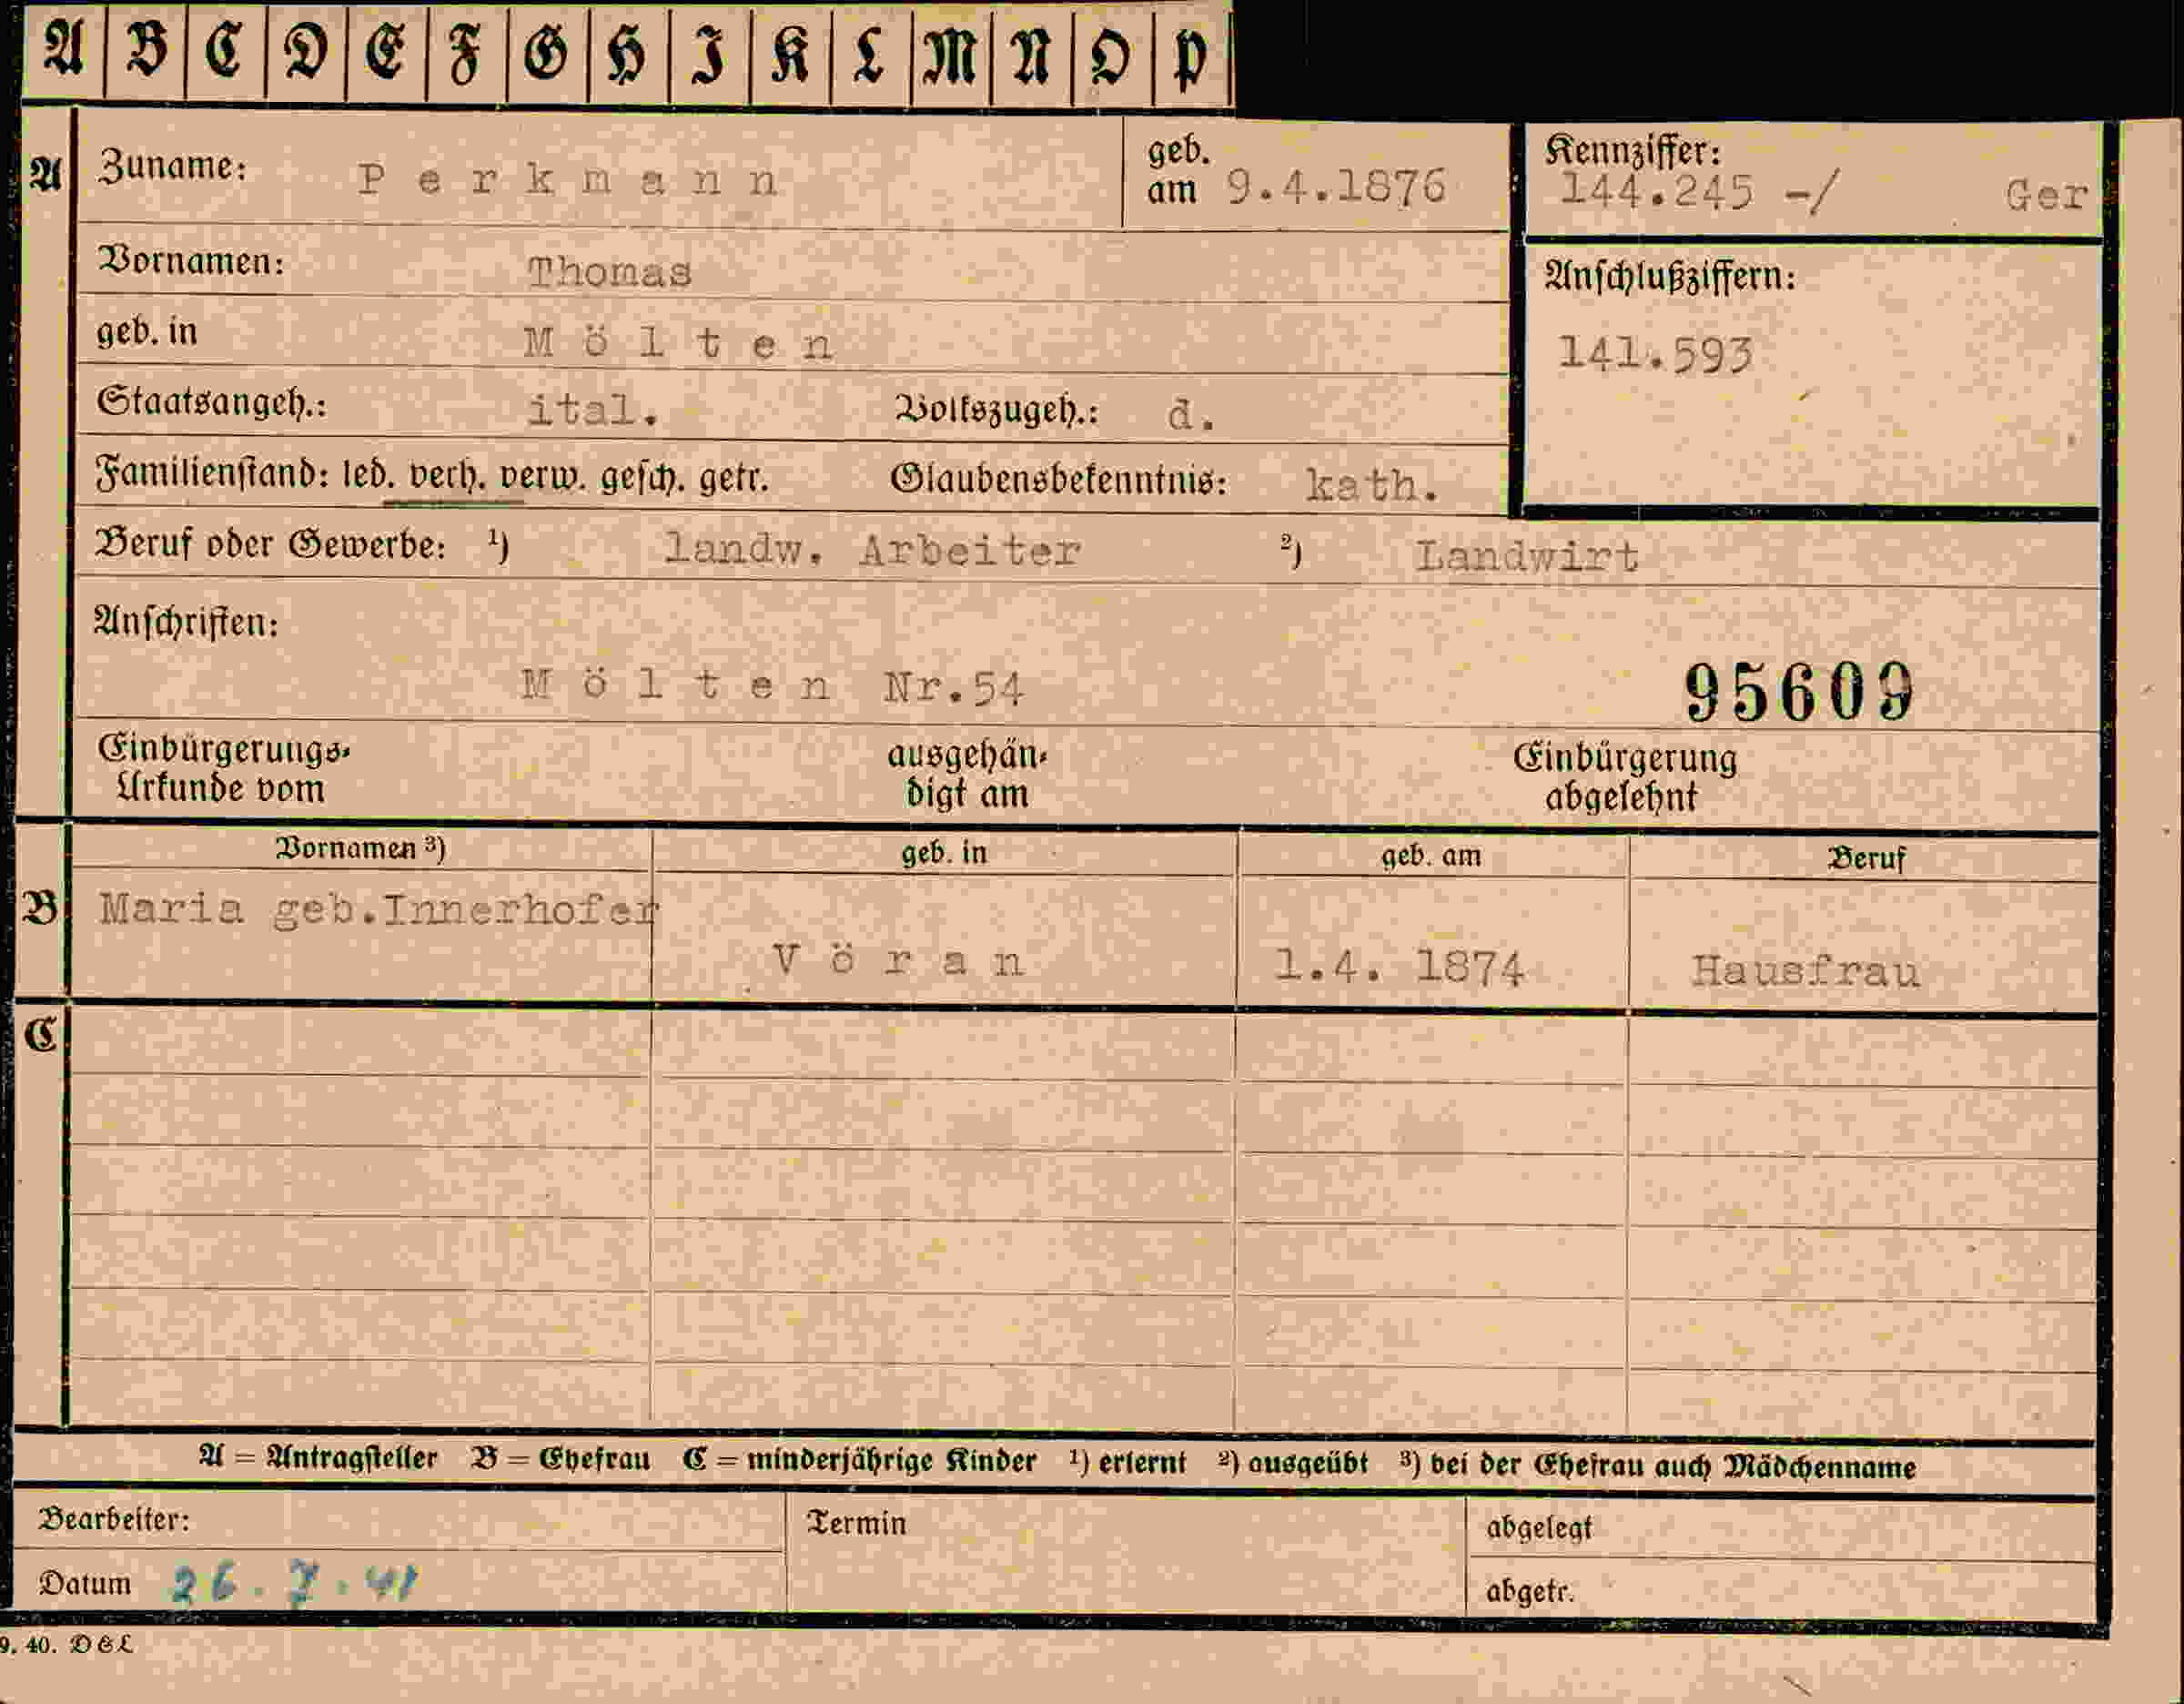 A B C D E F G H I K L M N O P
A Zuname: Perkmann geb. am 9.4.1876 Kennziffer: 144.245 -/ Ger
Vornamen: Thomas Anschlußziffern:
geb. in Mölten 141.593
Staatsangeh.: ital. Volkszugeh.: d.
Familienstand: led. verh. verw. gesch. getr. Glaubensbekenntnis: kath.
Beruf oder Gewerbe: ¹) landw. Arbeiter ²) Landwirt
Anschriften:
Mölten Nr.54 95609
Einbürgerungs- ausgehän- Einbürgerung
Urkunde vom digt am abgelehnt
Vornamen ³) geb. in geb. am Beruf
B Maria geb.Innerhofer
Vöran 1.4. 1874 Hausfrau
C
A = Antragsteller B = Ehefrau C = minderjährige Kinder ¹) erlernt ²) ausgeübt ³) bei der Ehefrau auch Mädchenname
Bearbeiter: Termin abgelegt
Datum 26.7.41 abgetr.
9. 40. DGL